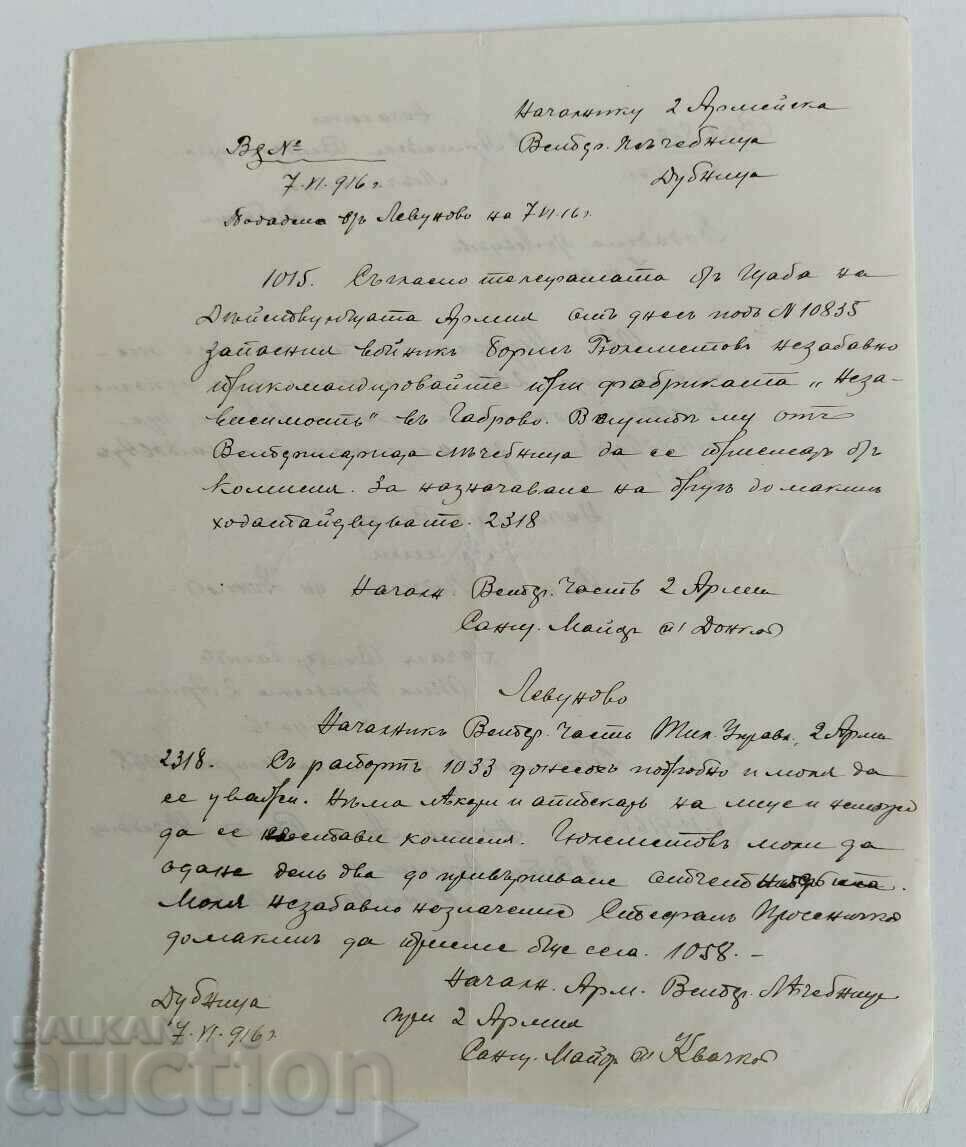 Началнику 2 Армейска
Ветер. Лѣчебница
Дубница
Вх №
7.VI.916 г.
Подадена въ Левуново на 7.VI.16 г.
1015. Съгласно телеграмата въ Щаба на
Дѣйствующата Армия отъ днесъ подъ № 10835
запасния войникъ Борисъ незабавно
прикомандировайте при фабриката „Неза-
висимость" въ Габрово. му отъ
Ветеринарната лѣчебница да се въ
комисия. За назначаване на другъ домакинъ
ходатайствувате. 2318
Началн. Ветер. Часть 2 Армия
Санит. Майоръ (п) Донков
Левуново
Началникъ Ветер. Часть Тил. Управл. 2 Армия
2318. Съ рапортъ 1033 донесохъ подробно и моля да
се уважи. Нѣма лѣкари и аптекарь на лице и
да се състави комисия. моли да
остане день два до привършване отчетностьта.
Моля незабавно назначение Стефанъ
домакинъ да приеме още сега. 1058. –
Дубница
7.VI.916 г.
Началн. Арм. Ветер. Лѣчебница
при 2 Армия
Санит. Майоръ (п) Квачков
БАЛКАН
auction